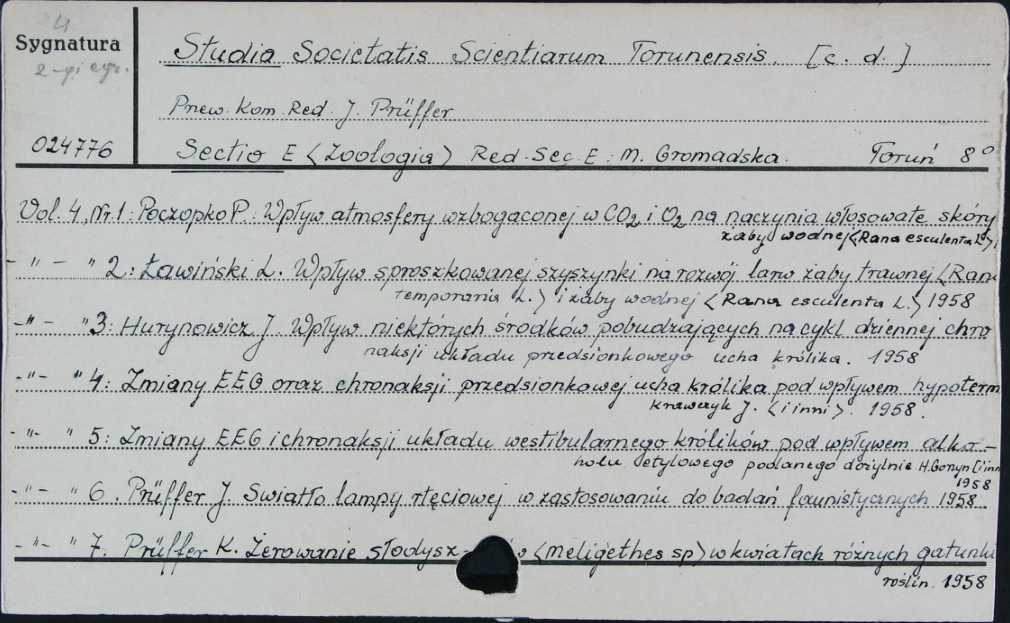 4
Sygnatura
2-gi egz.
024776
Studia Societatis Scientiarum Torunensis. [c. d.]
Przew. Kom. Red. J. Prüffer
Sectio E <Zoologia> Red. Sec. E: M. Gromadska. Toruń 8°
Vol. 4, Nr. 1: Poczopko P.: Wpływ atmosfery wzbogaconej w CO2 i O2 na naczynia włosowate skóry
żaby wodnej <Rana esculenta L>,
- " - " 2: Ławiński L. Wpływ sproszkowanej szyszynki na rozwój larw żaby trawnej <Rana
temporaria L.> i żaby wodnej <Rana esculenta L.> 1958
- " - " 3: Hurynowicz J. Wpływ niektórych środków pobudzających na cykl dziennej chro
naksji układu przedsionkowego ucha królika. 1958
- " - " 4: Zmiany EEG oraz chronaksji przedsionkowej ucha królika pod wpływem hypoterm
Krawczyk J. <i inni>. 1958.
- " - " 5: Zmiany EEG i chronaksji układu westibularnego królików pod wpływem alko-
holu etylowego podanego dożylnie H. Gonyn [i inn
1958
- " - " 6. Prüffer J. Światło lampy rtęciowej w zastosowaniu do badań faunistycznych 1958.
- " - " 7. Prüffer K. Żerowanie słodysz <Meligethes sp> w kwiatach różnych gatunki
roślin. 1958